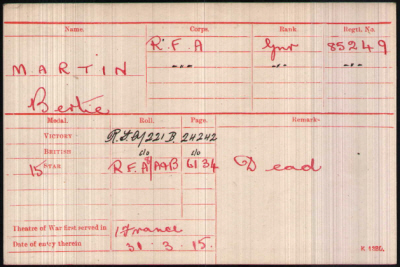 Name. Corps. Rank. Regtl. No.
R.F.A Gnr 85249
MARTIN -„- -„- -„-
Bertie
Medal. Roll. Page. Remarks
VICTORY R.F.A/221B. 24242
BRITISH do do
15 STAR R.F.A/4AB 6134 Dead
Theatre of War first served in 1. France
Date of entry therein 31 . 3 . 15.
K 1380.